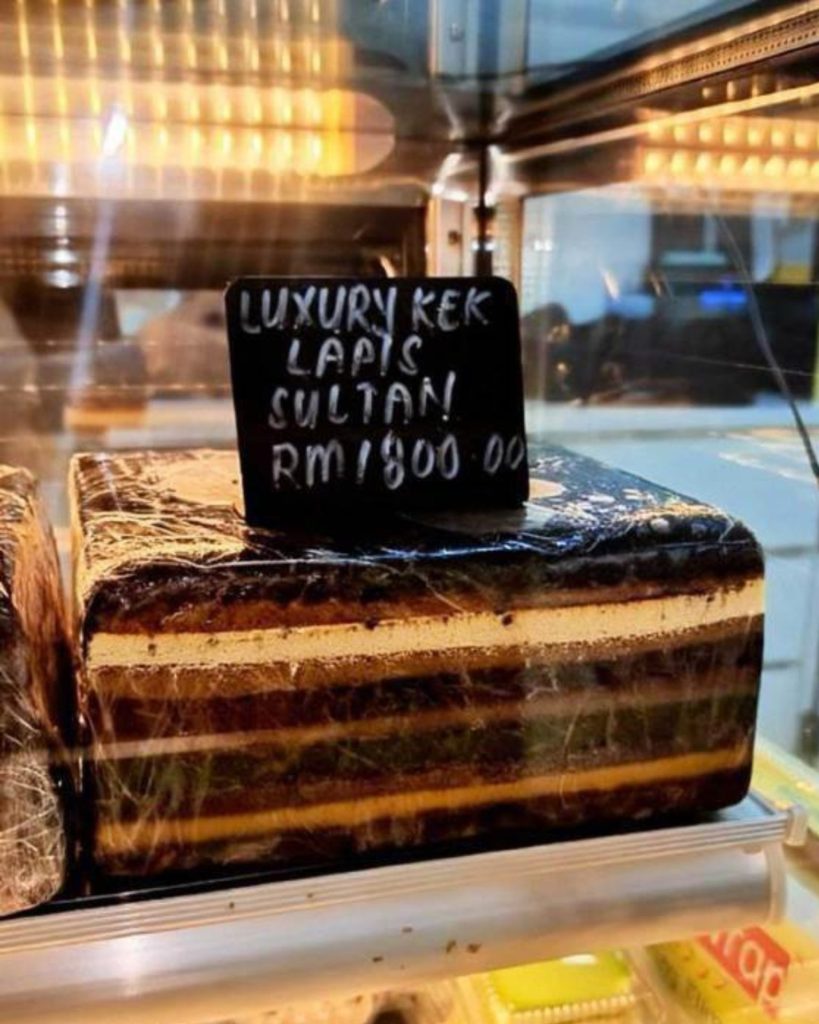 LUXURY KEK
LAPIS
SULTAN
RM1800.00